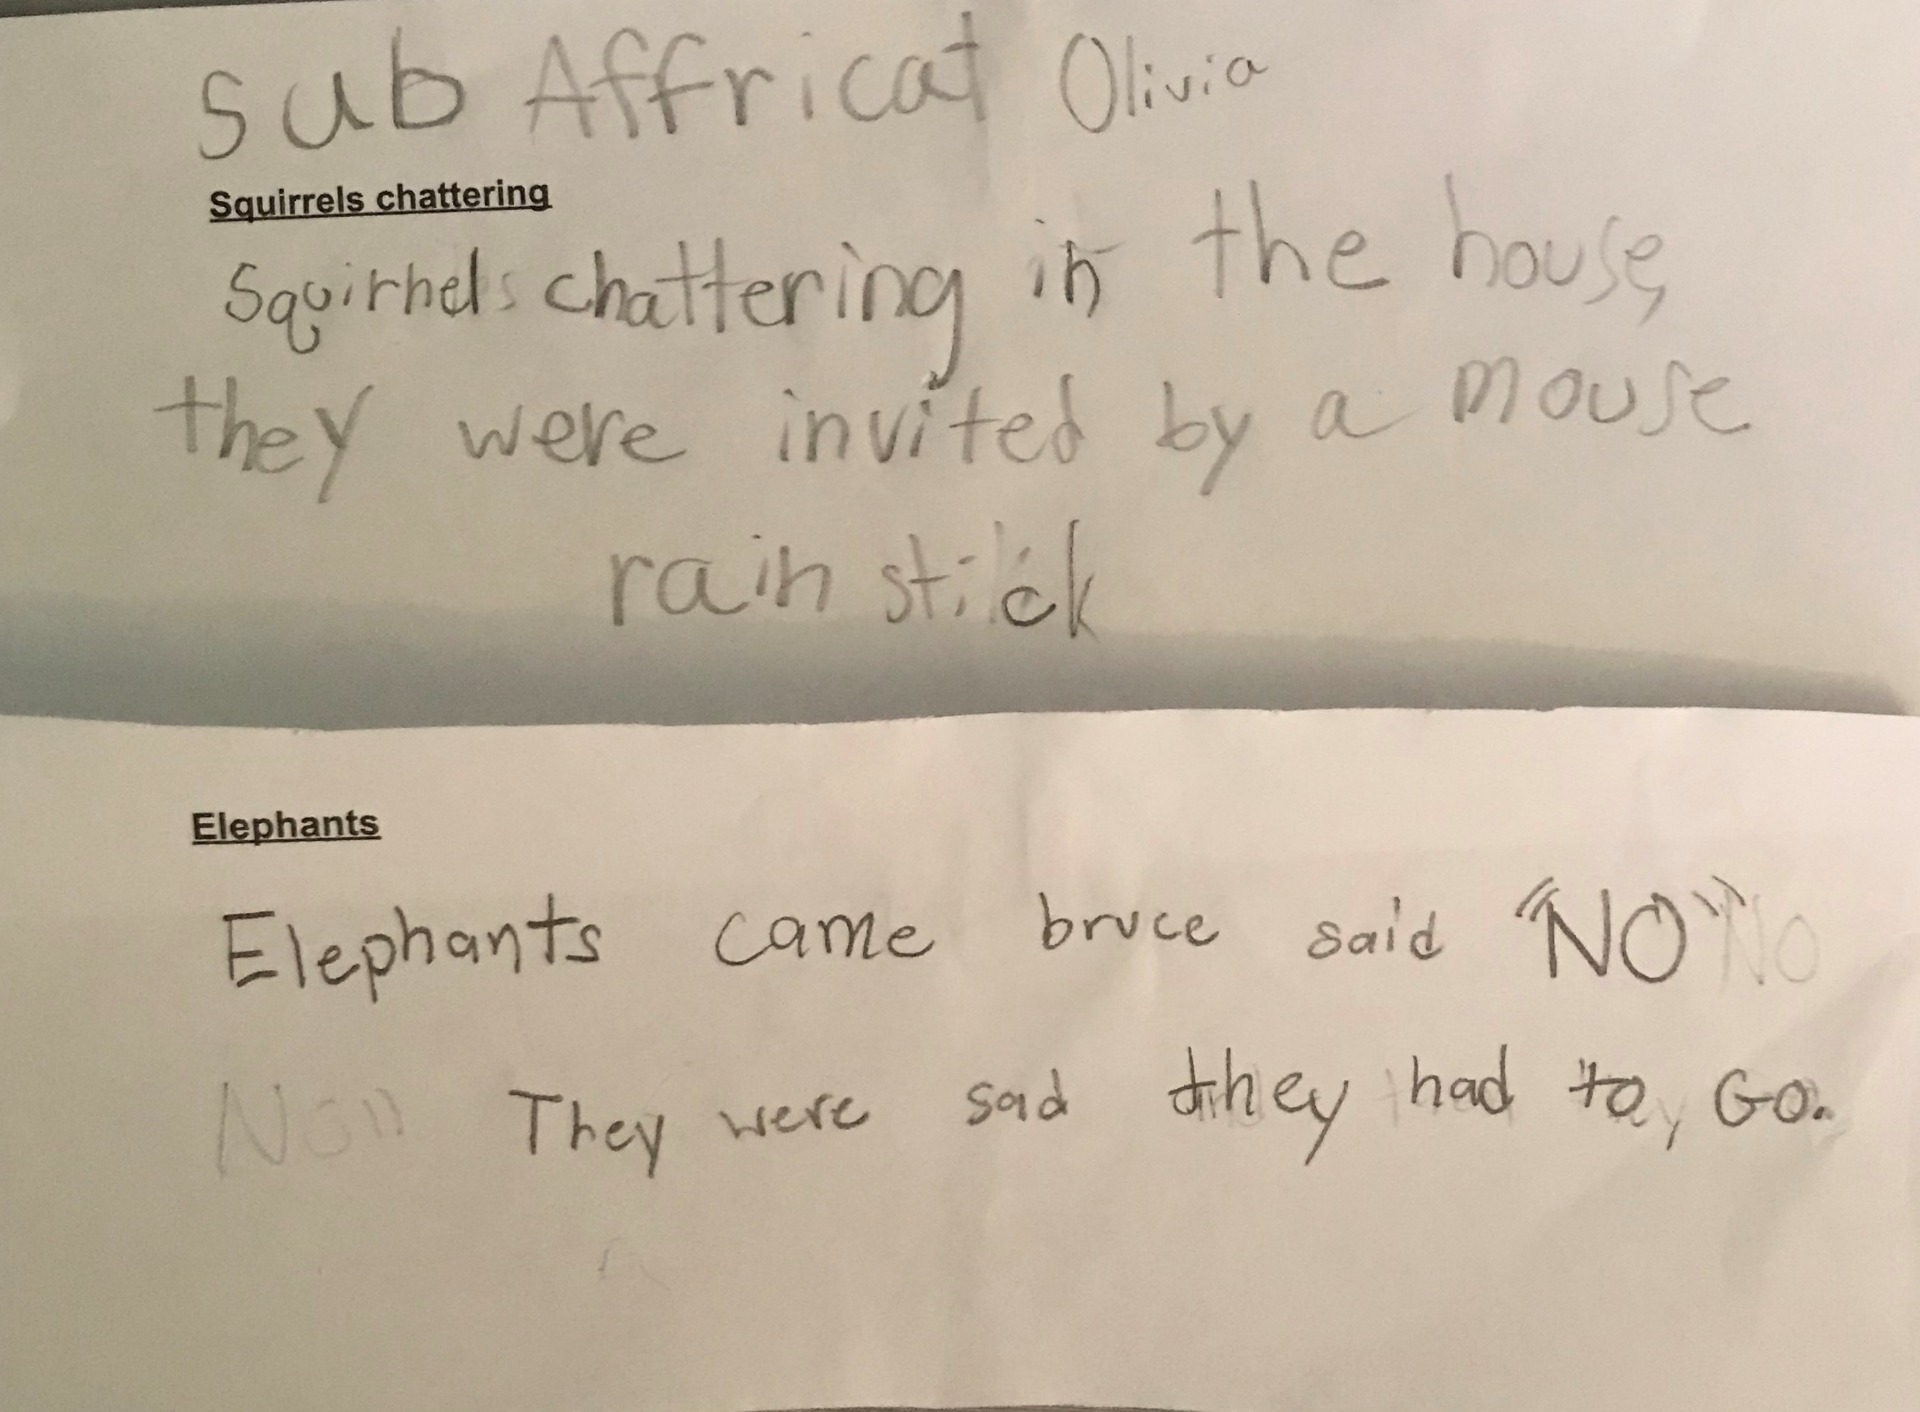 sub Affricat Olivia
Squirrels chattering
Squirhels chattering in the house,
they were invited by a mouse
rain stick
Elephants
Elephants came bruce said "NO" No
No" They were sad they had to Go.